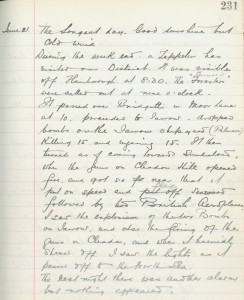 231
June 21 The Longest day. Good sunshine but
Cold wind.
During the week end a Zeppelin has
visited our District. It was visible
off Flamborough at 8.30. the "Forster"
were called out at nine o'clock.
It passed over Bridgett in Moor Lane
at 10. proceeded to Jarrow. dropped
bombs on the Jarrow shipyard (Palmers)
Killing 15 and injuring 15. It then
turned as if coming toward Sunderland,
when the guns on Cleadon Hills opened
fire and got so far near that it
put on speed and put off seaward
followed by two British Aeroplanes
I saw the explosions of the two Bombs
on Jarrow, and also the firing of the
Guns on Cleadon, and when it hurriedly
steered off I saw the lights as it
passed off to the North
The next night there was another alarm
but nothing appeared.